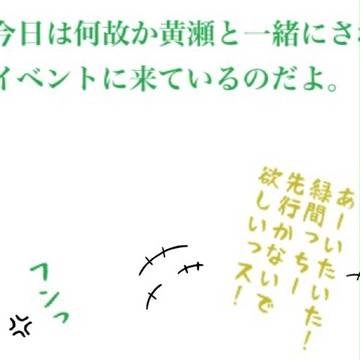 今日は何故か黄瀬と一緒にさ
イベントに来ているのだよ。
あーいたいた!
緑間っちー
先行かないで
欲しいっス!
フンっ